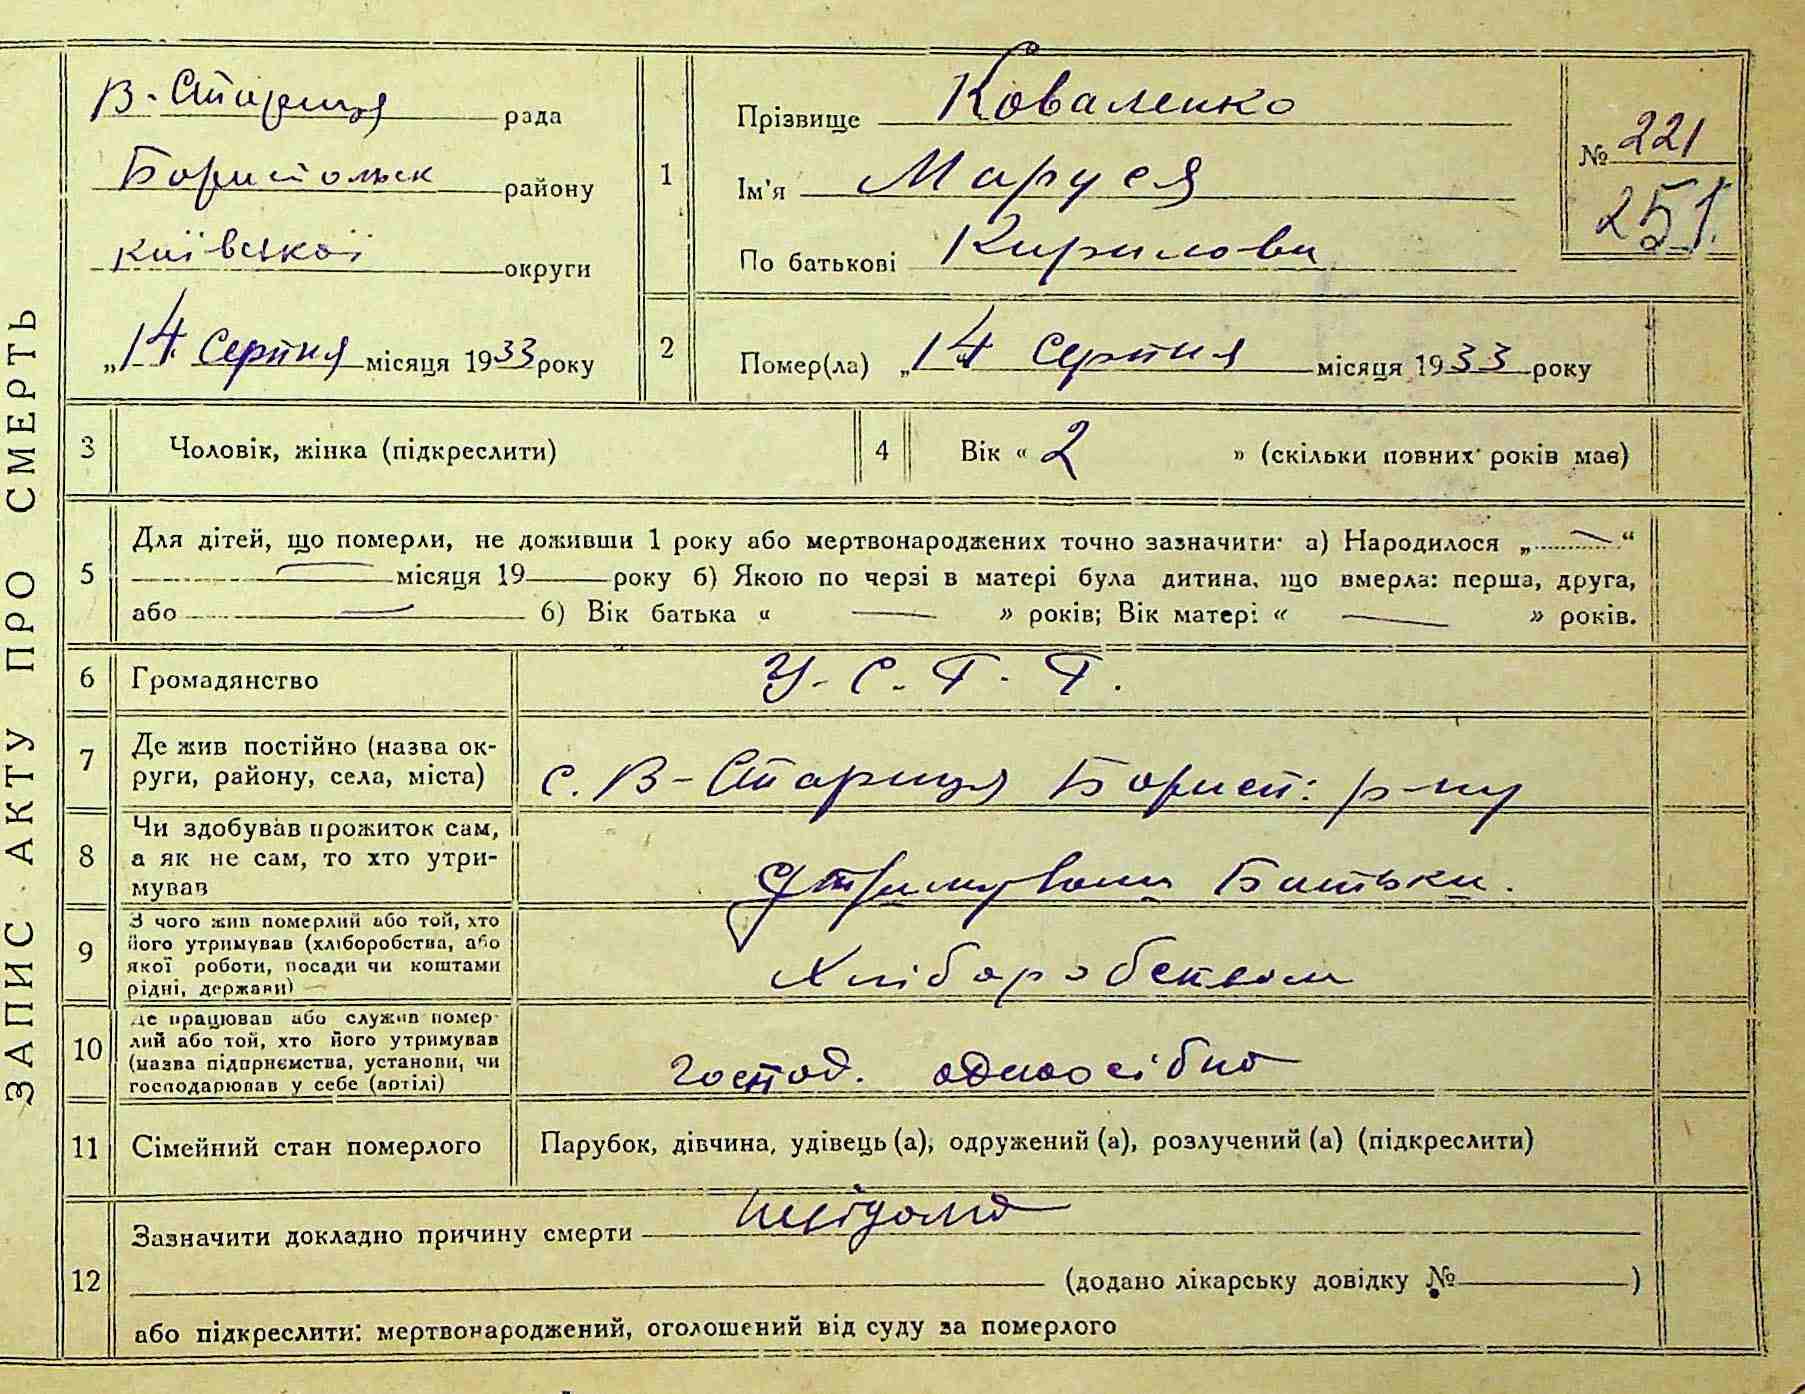 ЗАПИС АКТУ ПРО СМЕРТЬ
В-Стариця рада
Бориспольск району
київської округи
„14 Серпня місяця 1933 року
1
Прізвище Коваленко
Ім'я Маруся
По батькові Кирилова
№ 221
251.
2
Помер(ла) „14 Серпня місяця 1933 року
3 Чоловік, жінка (підкреслити)
4 Вік « 2 » (скільки повних років має)
5
Для дітей, що померли, не доживши 1 року або мертвонароджених точно зазначити· а) Народилося „ — “
— місяця 19 року б) Якою по черзі в матері була дитина, що вмерла: перша, друга,
або — б) Вік батька « — » років; Вік матері « — » років.
6 Громадянство У. С. Р. Р.
7
Де жив постійно (назва ок-
руги, району, села, міста)
с. В-Стариця Борисп: р-ну
8
Чи здобував прожиток сам,
а як не сам, то хто утри-
мував
Утримували Батьки.
9
З чого жив померлий або той, хто
його утримував (хліборобства, або
якої роботи, посади чи коштами
рідні, держави)
Хліборобством
10
Де працював або служив помер-
лий або той, хто його утримував
(назва підприємства, установи, чи
господарював у себе (артілі)
господ. одноосібно
11 Сімейний стан померлого Парубок, дівчина, удівець (а), одружений (а), розлучений (а) (підкреслити)
12
Зазначити докладно причину смерти
(додано лікарську довідку № )
або підкреслити: мертвонароджений, оголошений від суду за померлого